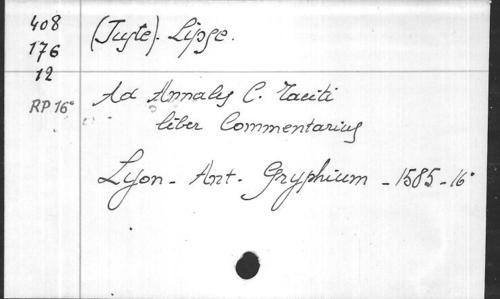 408
176
12
RP 16°
(Juste). Lipse.
Ad Annales C. Taciti
liber Commentarius
Lyon - Ant. Gryphium - 1585 - 16°